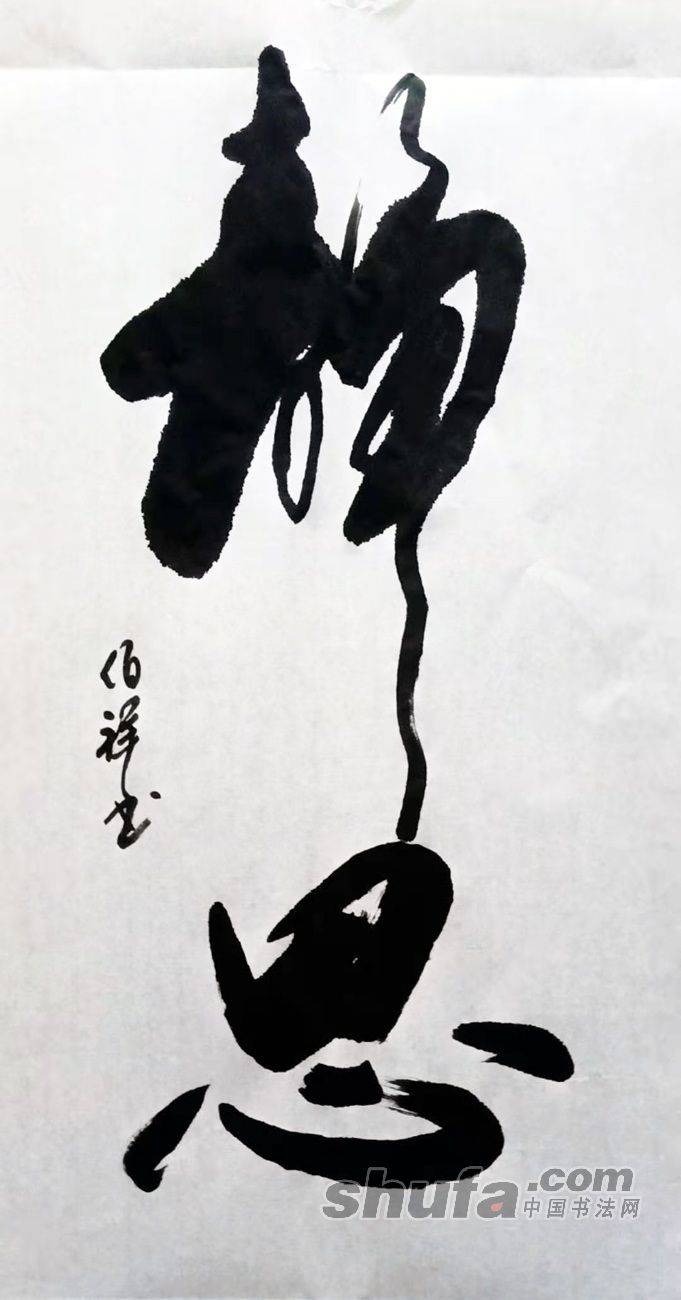 静思
伯祥书
shufa.com
中国书法网